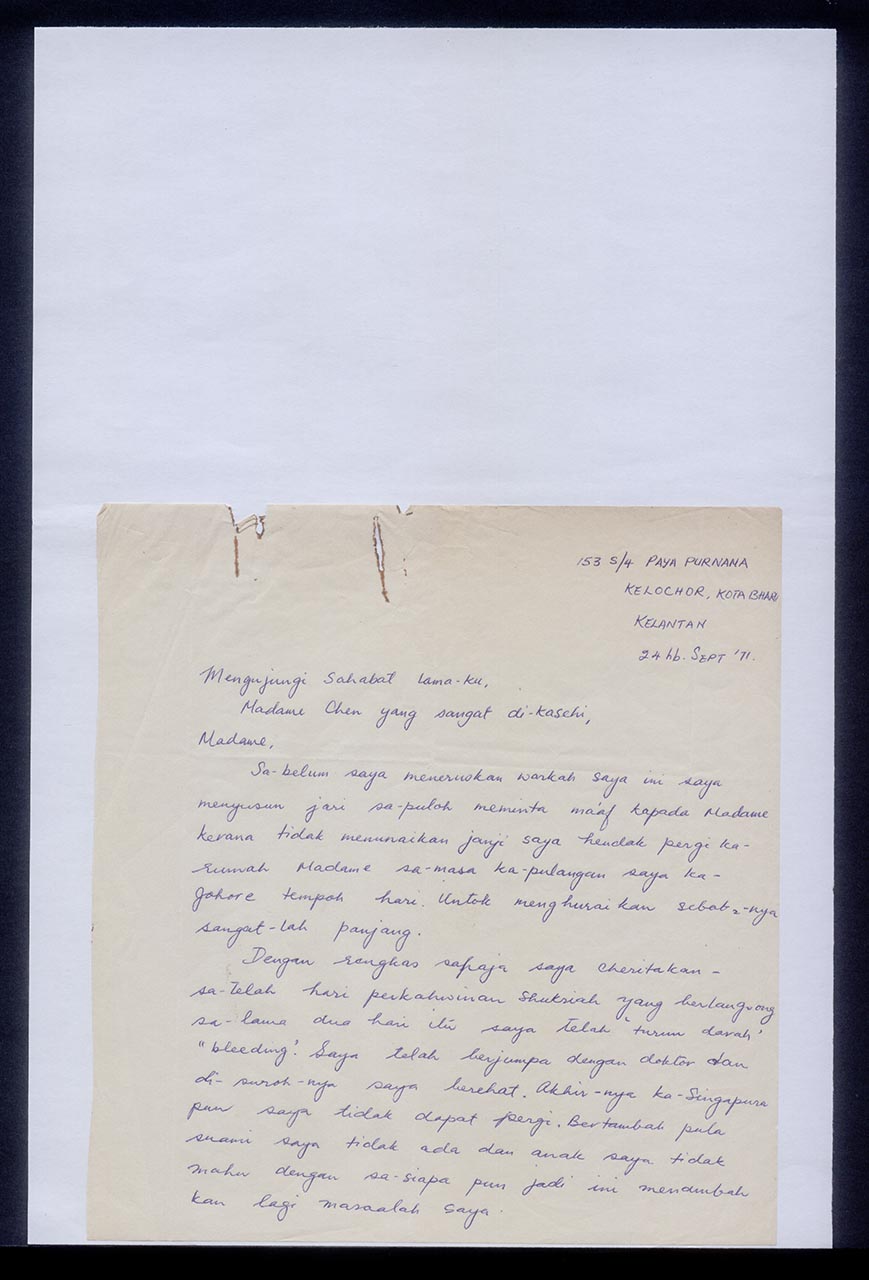 153 S/4 PAYA PURNANA
KELOCHOR, KOTA BHARU
KELANTAN
24 hb. SEPT '71.
Mengujungi Sahabat lama-ku,
Madame Chen yang sangat di-kasehi,
Madame,
Sa-belum saya meneruskan warkah saya ini saya
menyusun jari sa-puloh meminta ma'af kapada Madame
kerana tidak menunaikan janji saya hendak pergi ka-
rumah Madame sa-masa ka-pulangan saya ka-
Johore tempoh hari. Untok menghuraikan sebab2-nya
sangat-lah panjang.
Dengan rengkas sahaja saya cheritakan -
sa-telah hari perkahwinan Shukriah yang berlangsong
sa-lama dua hari itu saya telah 'turun darah'
"bleeding". Saya telah berjumpa dengan doktor dan
di-suroh-nya saya berehat. Akhir-nya ka-Singapura
pun saya tidak dapat pergi. Bertambah pula
suami saya tidak ada dan anak saya tidak
mahu dengan sa-siapa pun jadi ini menambah
kan lagi masaalah saya.